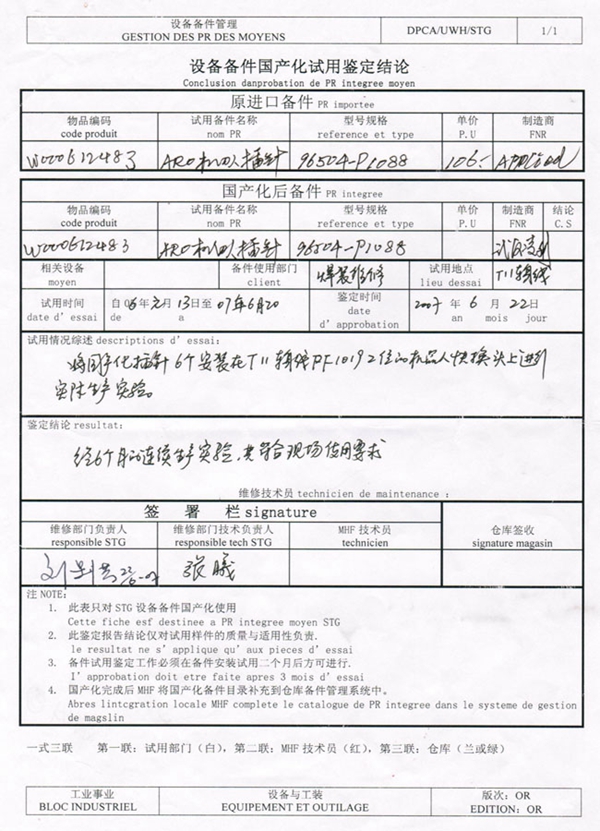 设备备件管理 DPCA/UWH/STG 1/1
GESTION DES PR DES MOYENS
设备备件国产化试用鉴定结论
Conclusion danprobation de PR integree moyen
原进口备件 PR importee
物品编码 试用备件名称 型号规格 单价 制造商
code produit nom PR reference et type P.U FNR
W000612483 ARO机器人插针 96504-P1088 106.-
国产化后备件 PR integree
物品编码 试用备件名称 型号规格 单价 制造商 结论
code produit nom PR reference et type P.U FNR C.S
W000612483 ARO机器人插针 96504-P1088
相关设备 备件使用部门 焊装维修 试用地点 T11辅线
moyen client lieu dessai
试用时间 自06年元月13日至 07年6月20 鉴定时间 2007 年 6 月 22日
date d'essai de a date d'approbation an mois jour
试用情况综述 descriptions d'essai:
将国产化插针6个安装在T11辅线PF10192位的机器人快换头上进行
实际生产实验。
鉴定结论 resultat:
经6个月的连续生产实验,其符合现场使用要求
维修技术员 technicien de maintenance :
签 署 栏 signature
维修部门负责人 维修部门技术负责人 MHF 技术员 仓库签收
responsible STG responsible tech STG technicien signature magasin
张曦
注 NOTE:
1. 此表只对 STG 设备备件国产化使用
Cette fiche esf destinee a PR integree moyen STG
2. 此鉴定报告结论仅对试用样件的质量与适用性负责.
le resultat ne s'applique qu'aux pieces d'essai
3. 备件试用鉴定工作必须在备件安装试用二个月后方可进行.
l'approbation doit etre faite apres 3 mois d'essai
4. 国产化完成后 MHF 将国产化备件目录补充到仓库备件管理系统中。
Abres lintcgration locale MHF complete le catalogue de PR integree dans le systeme de gestion
de magslin
一式三联 第一联: 试用部门（白）, 第二联: MHF 技术员（红）, 第三联: 仓库（兰或绿）
工业事业 设备与工装 版次: OR
BLOC INDUSTRIEL EQUIPEMENT ET OUTILAGE EDITION: OR